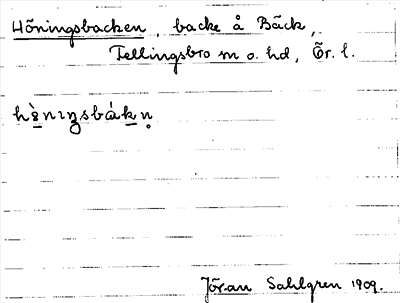 Höningsbacken, backe å Bäck,
Fellingsbro sn o. hd, Ör. l.
hὲnıŋsbákn̥
Jöran Sahlgren 1909.